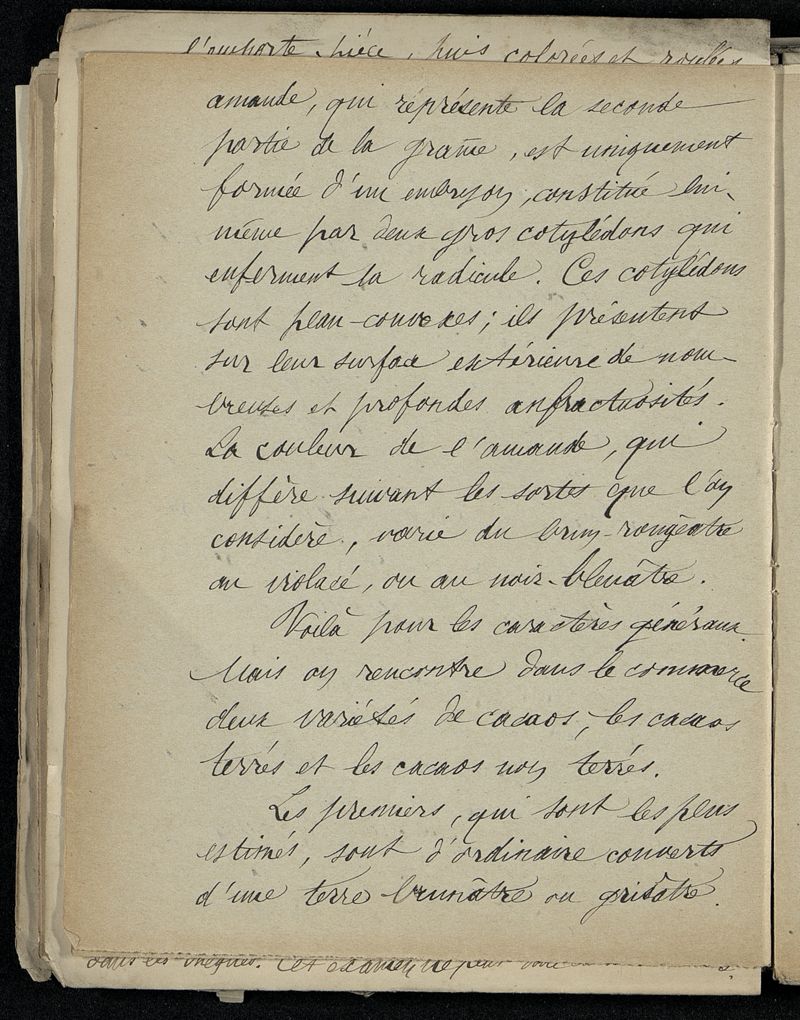 l'emporte-pièce, puis colorées et roulées
amande, qui représente la seconde
partie de la graine, est uniquement
formée d'un embryon, constitué lui-
même par deux gros cotylédons qui
enferment la radicule. Ces cotylédons
sont plan-convexes; ils présentent
sur leur surface extérieure de nom-
breuses et profondes anfractuosités.
La couleur de l'amande, qui
diffère suivant les sortes que l'on
considère, varie du brun-rougeâtre
au violacé, ou au noir-bleuâtre.
Voilà pour les caractères généraux.
Mais on rencontre dans le commerce
deux variétés de cacaos, les cacaos
terrés et les cacaos non terrés.
Les premiers, qui sont les plus
estimés, sont d'ordinaire couverts
d'une terre brunâtre ou grisâtre.
Cet examen, ne peut